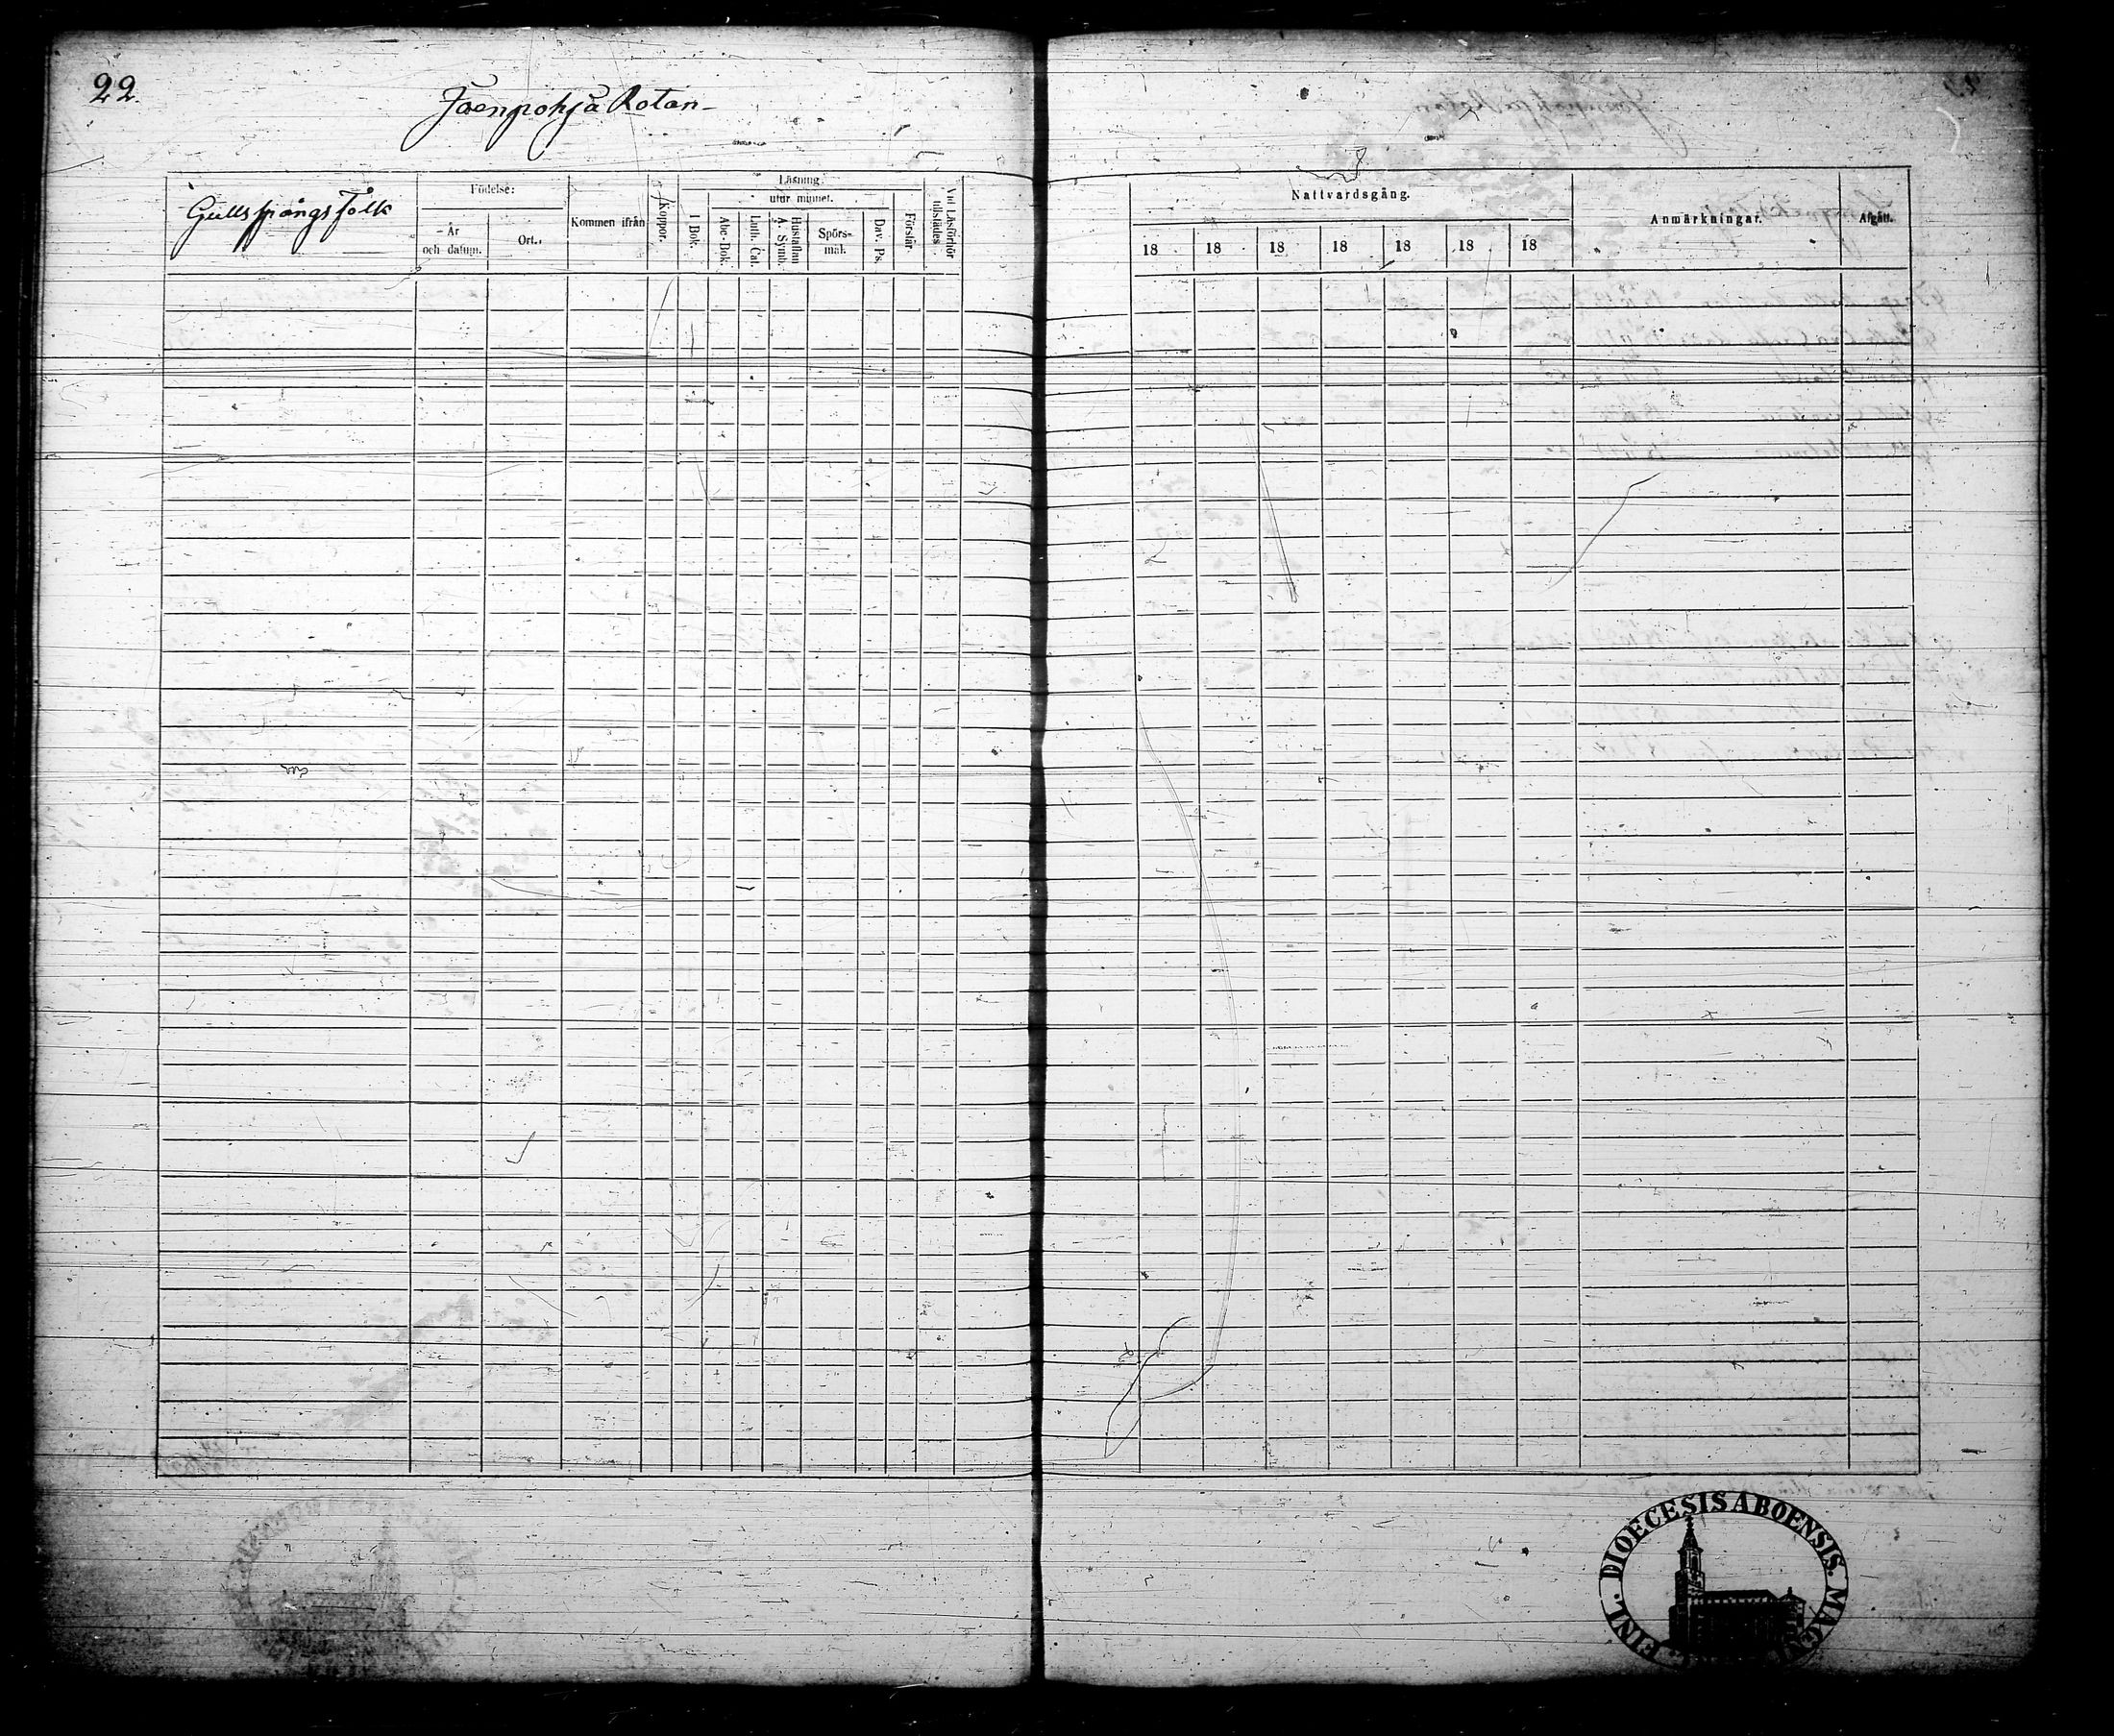 22.
Joenpohja Rotan
Gullspångs Folk
Födelse:
År och datum.
Ort.
Kommen ifrån
Koppor.
Läsning
utur minnet.
I Bok.
Abc-Bok.
Luth. Cat.
Hustaflan A. Symb.
Spörs-mål.
Dav. Ps.
Förstår.
Vid Läsförhör tillstädes.
Nattvardsgång.
18 18 18 18 18 18 18
Anmärkningar.
Afgått.
FINL. DIOECESIS ABOENSIS. MAG